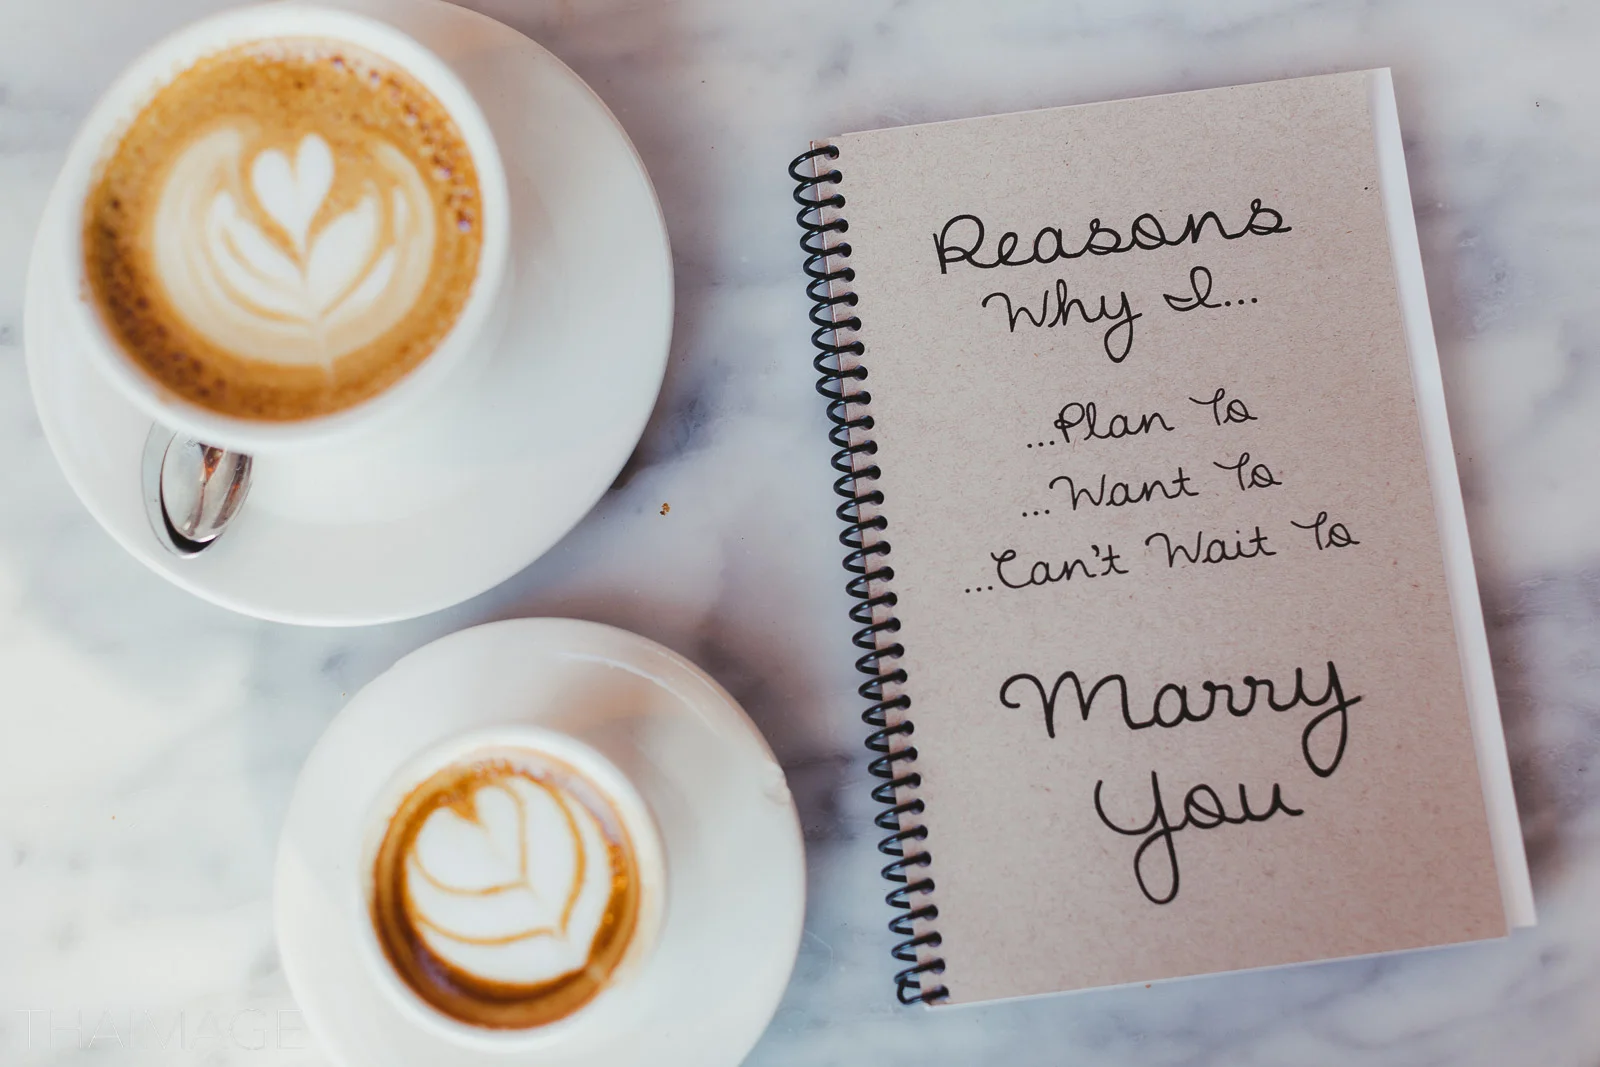 Reasons
Why I...
...Plan To
...Want To
...Can't Wait To
Marry
You
THAIMAGE